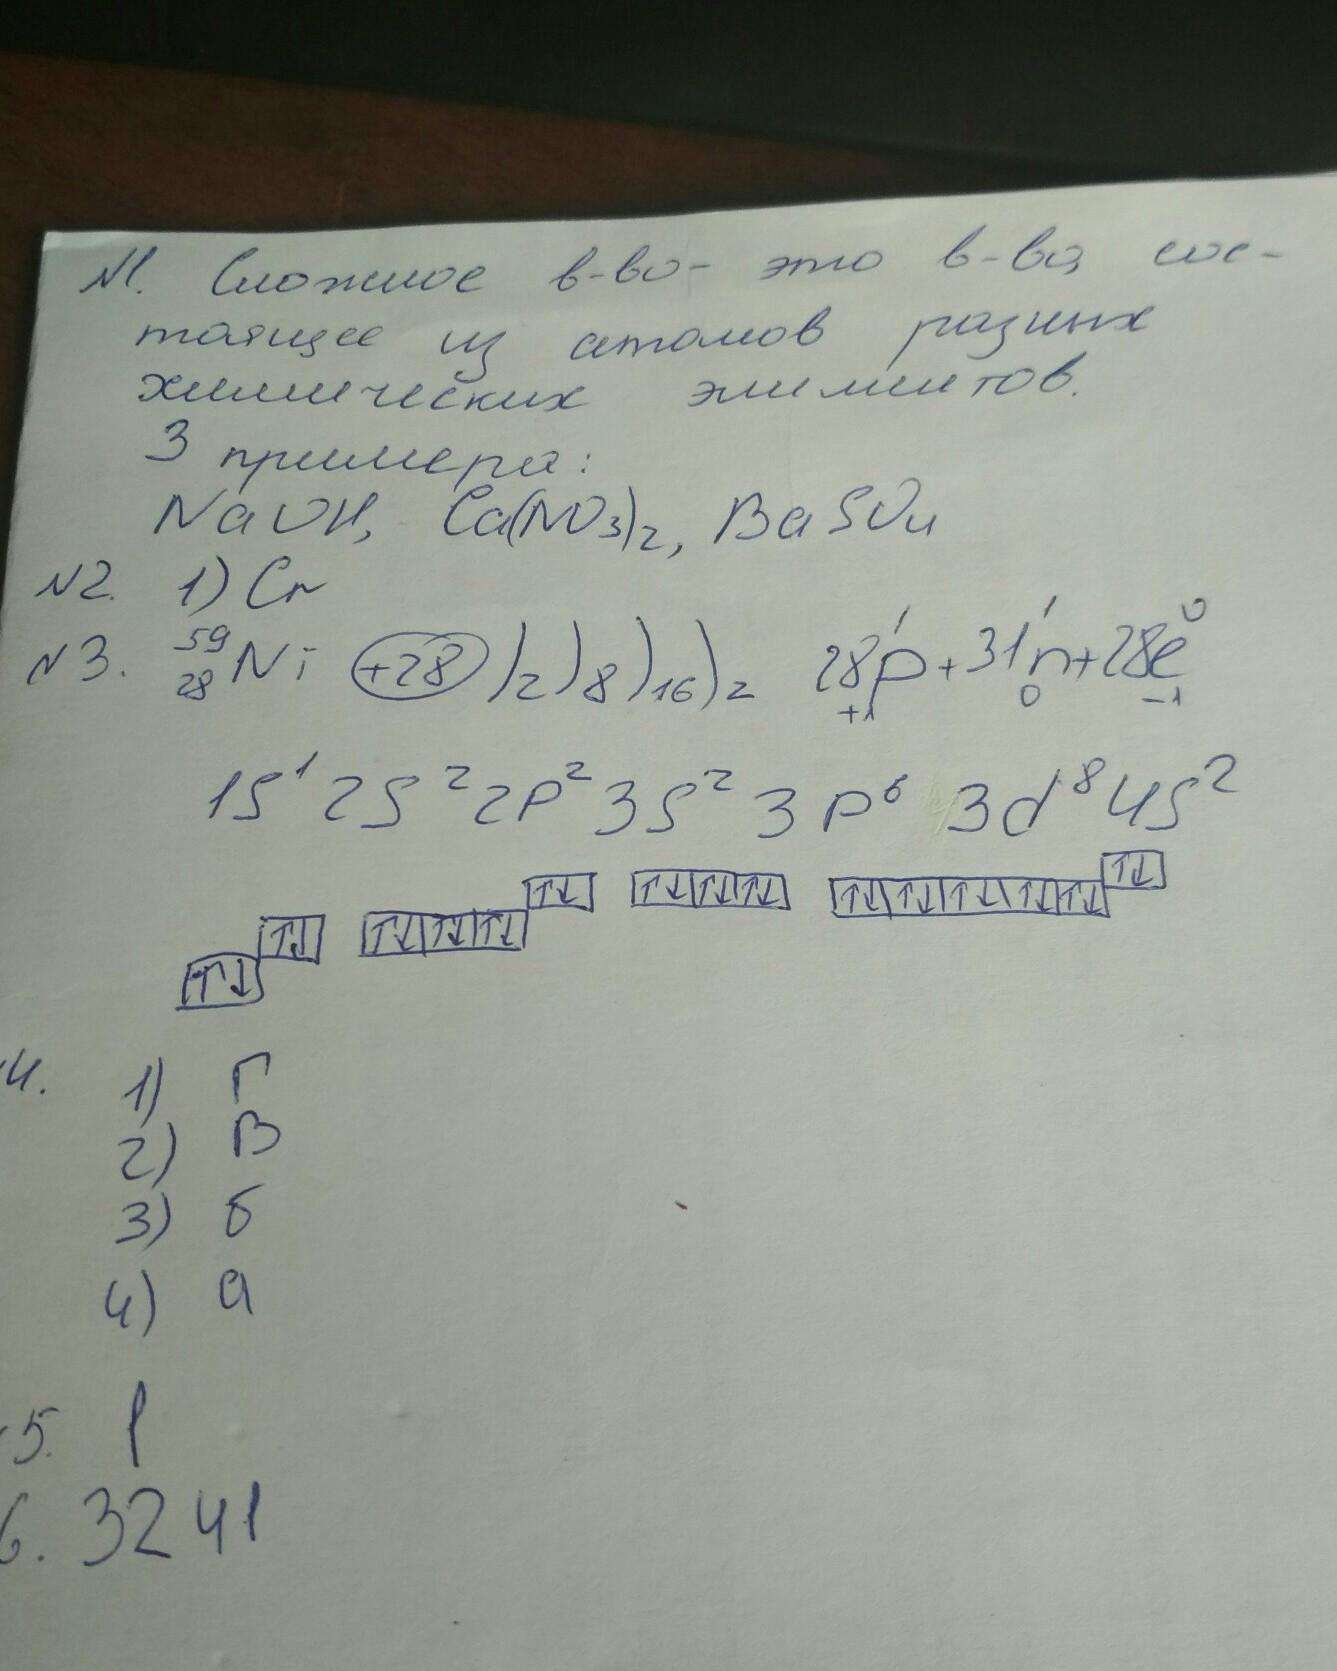 №1. Сложное в-во - это в-во, сос-
тоящее из атомов разных
химических элиментов.
3 примера:
NaOH, Ca(NO₃)₂, BaSO₄
№2. 1) Cr
№3. ⁵⁹₂₈Ni +28 )₂)₈)₁₆)₂ 28¹₊₁p + 31¹₀n + 28⁰₋₁e
1S¹ 2S² 2P² 3S² 3P⁶ 3d⁸ 4S²
↑↓ ↑↓ ↑↓ ↑↓ ↑↓ ↑↓ ↑↓ ↑↓ ↑↓ ↑↓ ↑↓ ↑↓ ↑↓ ↑↓ ↑↓
4. 1) Г
2) В
3) б
4) а
5. 1
6. 3241